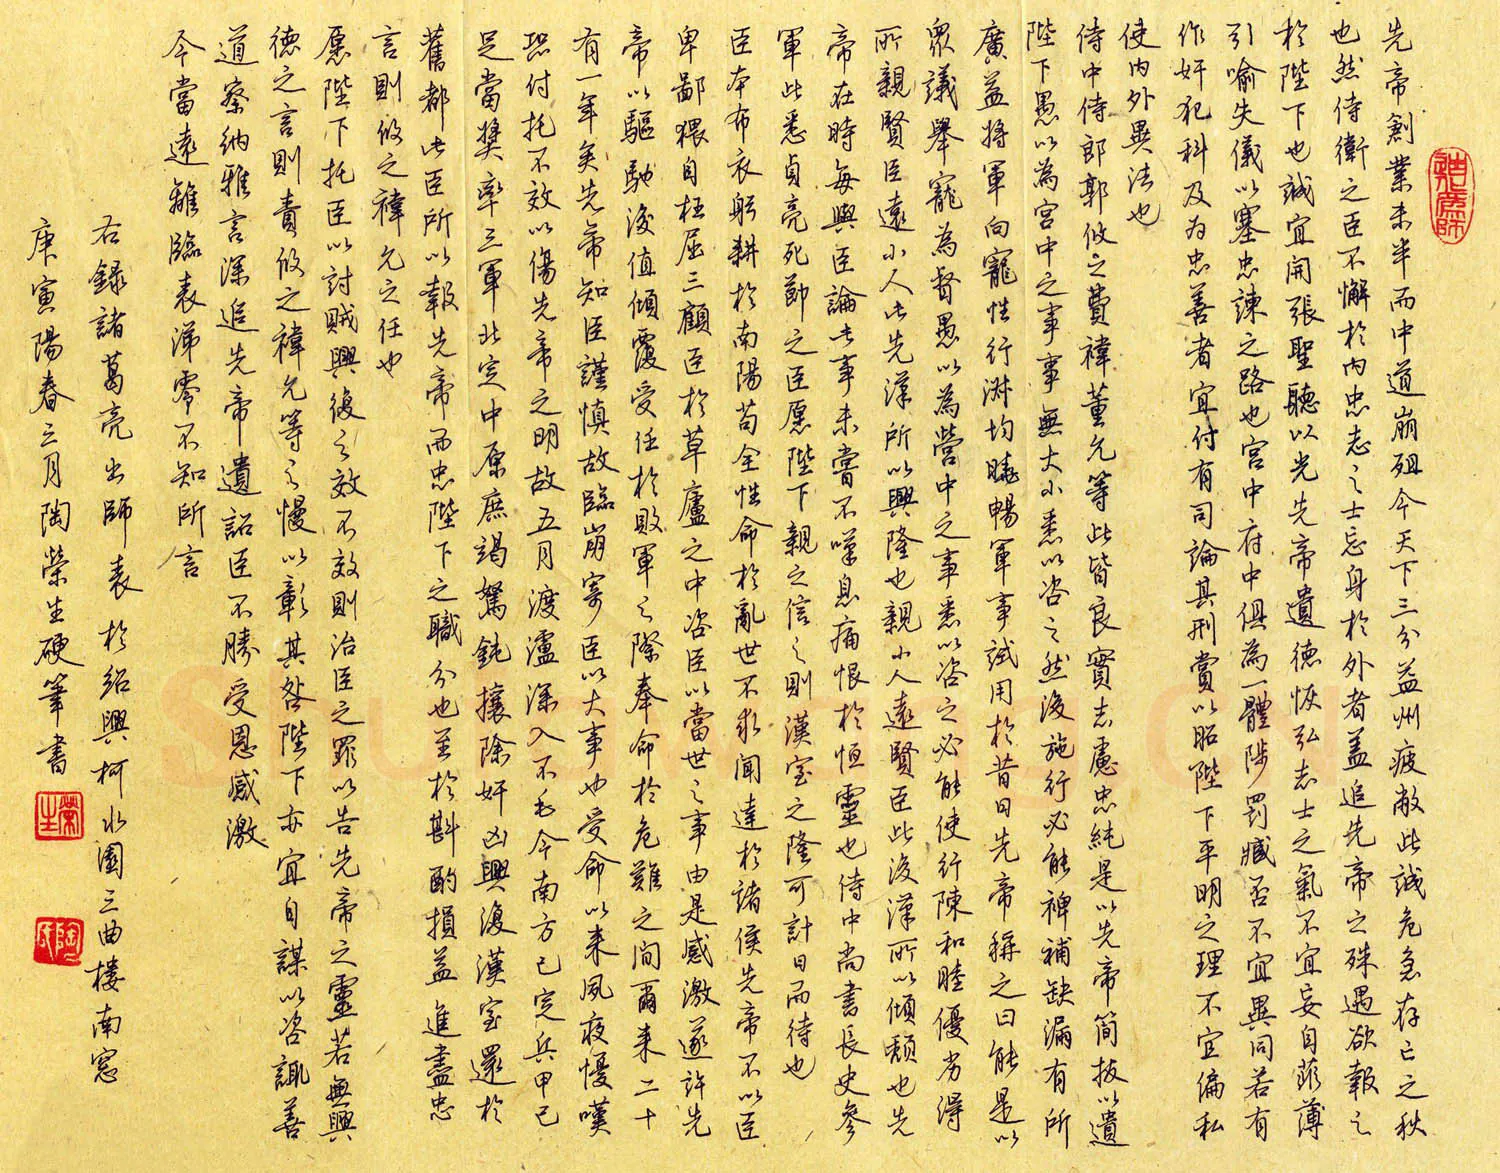 先帝創業未半而中道崩殂今天下三分益州疲敝此誠危急存亡之秋
也然侍衛之臣不懈於內忠志之士忘身於外者蓋追先帝之殊遇欲報之
於陛下也誠宜開張聖聽以光先帝遺德恢弘志士之氣不宜妄自菲薄
引喻失儀以塞忠諫之路也宮中府中俱為一體陟罰臧否不宜異同若有
作奸犯科及為忠善者宜付有司論其刑賞以昭陛下平明之理不宜偏私
使內外異法也
侍中侍郎郭攸之費禕董允等此皆良實志慮忠純是以先帝簡拔以遺
陛下愚以為宮中之事事無大小悉以咨之然後施行必能裨補缺漏有所
廣益將軍向寵性行淑均曉暢軍事試用於昔日先帝稱之曰能是以
眾議舉寵為督愚以為營中之事悉以咨之必能使行陳和睦優劣得
所親賢臣遠小人此先漢所以興隆也親小人遠賢臣此後漢所以傾頹也先
帝在時每與臣論此事未嘗不嘆息痛恨於恒靈也侍中尚書長史參
軍此悉貞亮死節之臣愿陛下親之信之則漢室之隆可計日而待也
臣本布衣躬耕於南陽苟全性命於亂世不求聞達於諸侯先帝不以臣
卑鄙猥自枉屈三顧臣於草廬之中咨臣以當世之事由是感激遂許先
帝以驅馳後值傾覆受任於敗軍之際奉命於危難之間爾來二十
有一年矣先帝知臣謹慎故臨崩寄臣以大事也受命以來夙夜憂嘆
恐付托不效以傷先帝之明故五月渡瀘深入不毛今南方已定兵甲已
足當獎率三軍北定中原庶竭駑鈍攘除奸凶興復漢室還於
舊都此臣所以報先帝而忠陛下之職分也至於斟酌損益進盡忠
言則攸之禕允之任也
愿陛下托臣以討賊興復之效不效則治臣之罪以告先帝之靈若無興
德之言則責攸之禕允等之慢以彰其咎陛下亦宜自謀以咨諏善
道察納雅言深追先帝遺詔臣不勝受恩感激
今當遠離臨表涕零不知所言
右錄諸葛亮出師表於紹興柯水園三曲樓南窗
庚寅陽春三月陶榮生硬筆書